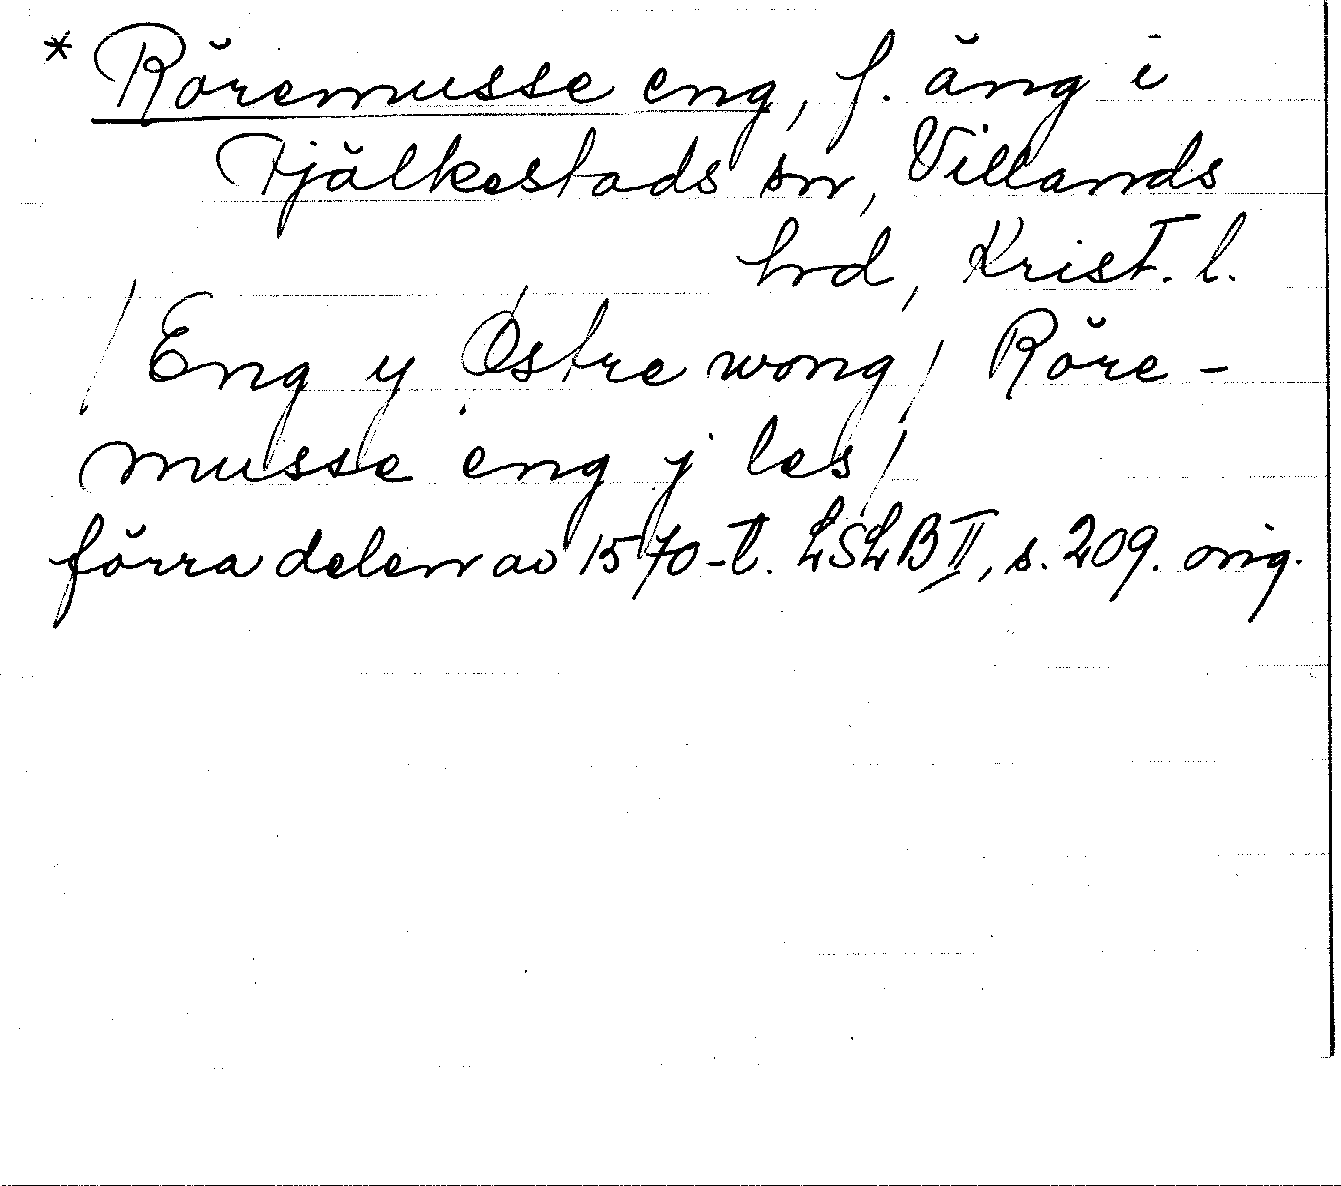 * Röremusse eng, f. äng i
Fjälkestads sn, Villands
hrd, Krist. l.
/Eng y Østre wong/ Röre-
musse eng j les/
förra delen av 1570-t. LSLB II, s. 209. orig.